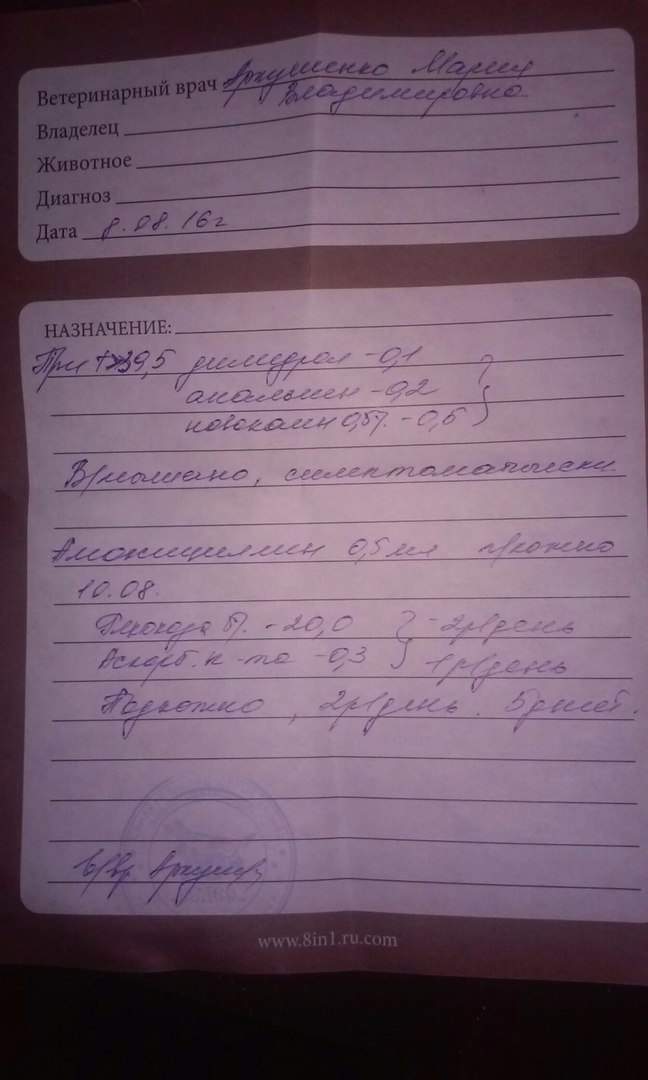 Ветеринарный врач Аркушенко Мария
Владимировна
Владелец
Животное
Диагноз
Дата 8.08.16г
НАЗНАЧЕНИЕ:
При t>39,5 димедрол -0,1
анальгин -0,2
новокаин 0,5%. -0,5
В/мышечно, симптоматически
Амоксициллин 0,5 мл п/кожно
10.08.
Глюкоза 5%. -20,0 } -2р/день
Аскорб. к-та -0,3 } 1р/день
Подкожно, 2р/день. 5 дней.
в/вр.
www.8in1.ru.com